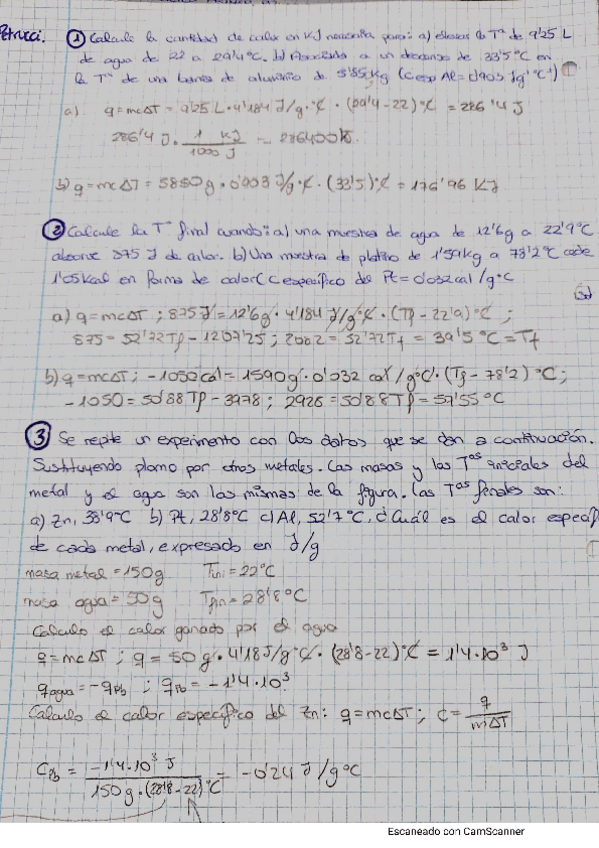 Petrucci. ① Calcule la cantidad de calor en KJ necesaria para: a) elevar la Tª de 9'25 L
de agua de 22 a 29'4 ºC. b) Asociada a un descenso de 33'5 ºC en
la Tª de una barra de aluminio de 5'85 kg (Cesp Al = 0'903 Jg⁻¹ºC⁻¹)
a) q = mcΔT = 9'25 L · 4'184 J/g·ºC · (29'4 - 22) ºC = 286'4 J
286'4 J · 1 KJ / 1000 J = 286400 KJ.
b) q = mcΔT = 5850g · 0'903 J/g·ºC · (33'5) ºC = 176'96 KJ
② Calcule la Tª final cuando: a) una muestra de agua de 12'6g a 22'9ºC
absorve 875 J de calor. b) Una muestra de platino de 1'59kg a 78'2ºC cede
1'05 Kcal en forma de calor (C específico del Pt = 0'032 cal/g·ºC
a) q = mcΔT ; 875 J = 12'6g · 4'184 J/gºC · (Tf - 22'9) ºC ;
875 = 52'72Tf - 1207'25 ; 2082 = 52'72Tf = 39'5 ºC = Tf
b) q = mcΔT ; -1050 cal = 1590g · 0'032 cal/gºC · (Tf - 78'2) ºC ;
-1050 = 50'88Tf - 3978 ; 2928 = 50'88Tf = 57'55 ºC
③ Se repite un experimento con los datos que se dan a continuación.
Sustituyendo plomo por otros metales. Las masas y las Tªs iniciales del
metal y el agua son las mismas de la figura. Las Tªs finales son:
a) Zn, 38'9ºC b) Pt, 28'8ºC c) Al, 52'7ºC, ¿Cuál es el calor específ
de cada metal, expresado en J/g
masa metal = 150g Tini = 22ºC
masa agua = 50g Tfin = 28'8ºC
Calculo el calor ganado por el agua
q = mcΔT ; q = 50 g · 4'18 J/gºC · (28'8 - 22) ºC = 1'4·10³ J
qagua = -qPb ; qPb = -1'4·10³
Calculo el calor específico del Zn: q = mcΔT ; C = q / mΔT
CPb = -1'4·10³ J / 150g · (28'8 - 22) ºC = -0'24 J/gºC
Escaneado con CamScanner